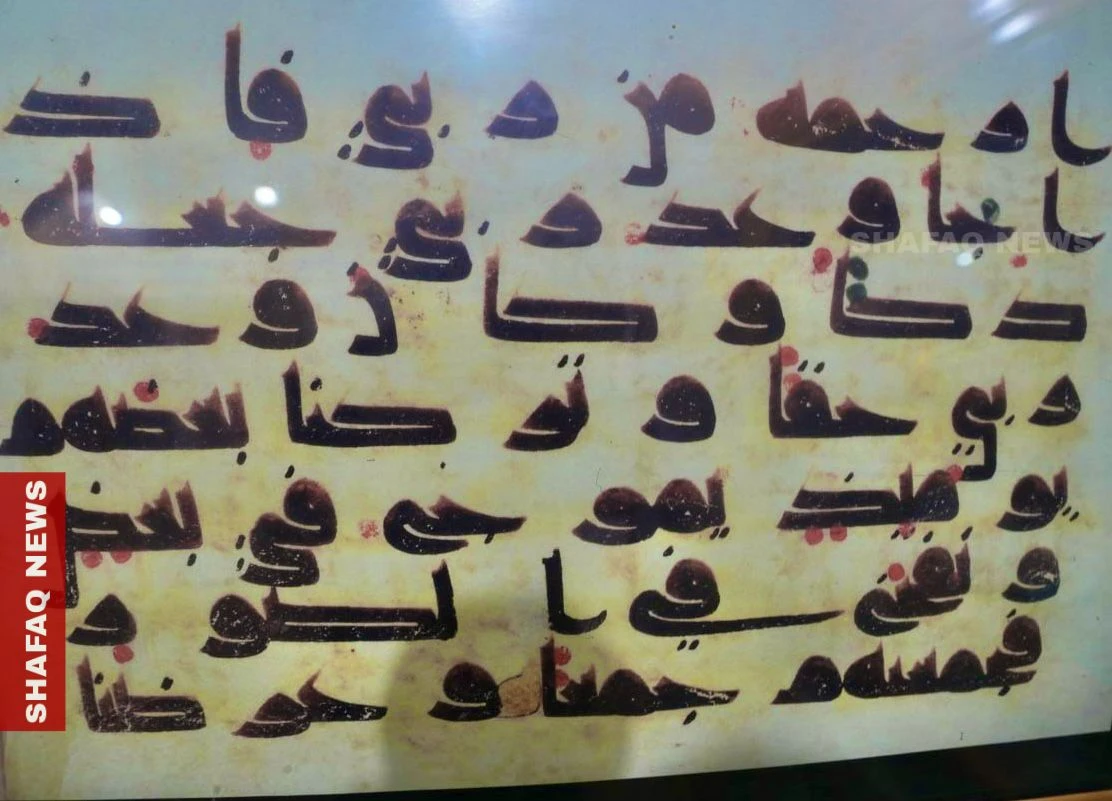 ا رحمه من ربي فاذ
ا جا وعد ربي جعله
دكا وكان وعد
ربي حقا وتركنا بعضهم
يومئذ يموج في بعض
ونفخ في الصور
فجمعنهم جمعا وعرضنا
SHAFAQ NEWS
SHAFAQ NEWS